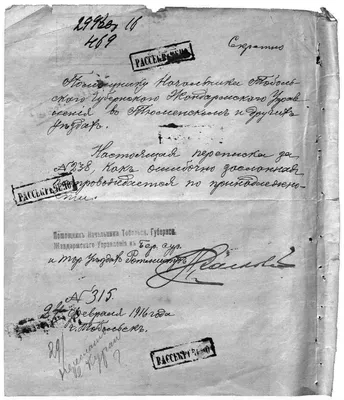 299
16
469
Секретно
РАССЕКРЕЧЕНО
Помощнику Начальника Тоболь-
скаго Губернскаго Жандармскаго Управ-
ленія въ Тюменскомъ и других
уѣздах.
Настоящая переписка за
№ 238, какъ ошибочно засланная
препровождается по принадлежно-
сти.
РАССЕКРЕЧЕНО
Помощникъ Начальника Тобольск. Губернск.
Жандармскаго Управленія въ Бер. Сур.
и Тур. уѣздах Ротмистръ
№ 315.
Февраля 1916 года
г. Тобольскъ.
РАССЕКРЕЧЕНО